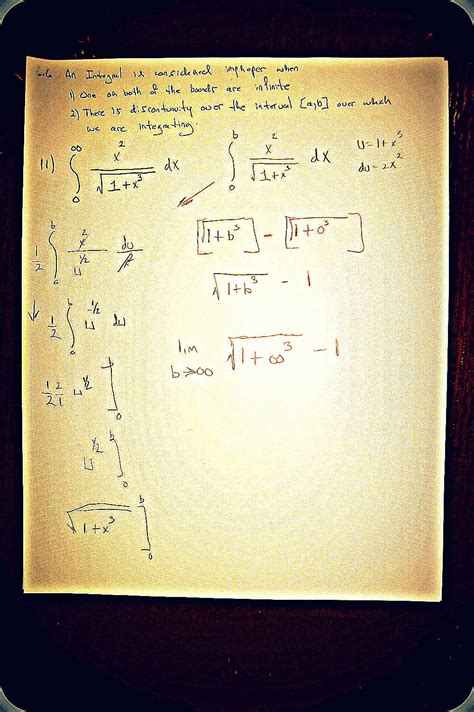 6.6 An Integral is considered improper when
1) One or both of the bounds are infinite
2) There is discontinuity over the interval [a,b] over which
we are integrating.
11) ∫₀^∞ x²/√(1+x³) dx
∫₀^b x²/√(1+x³) dx
u=1+x³
du=2x²
1/2 ∫₀^b x²/u^(1/2) du/x²
1/2 ∫₀^b u^(-1/2) du
1/2 2/1 u^(1/2) ]₀^b
u^(1/2) ]₀^b
√(1+x³) ]₀^b
[√(1+b³)] - [√(1+0³)]
√(1+b³) - 1
lim b→∞ √(1+∞³) - 1